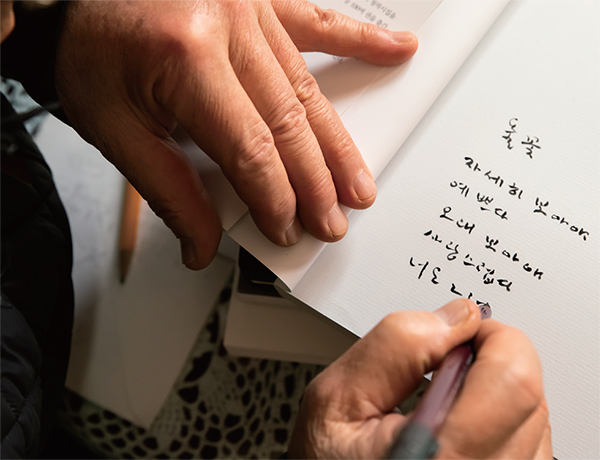 풀꽃
자세히 보아야
예쁘다
오래 보아야
사랑스럽다
너도